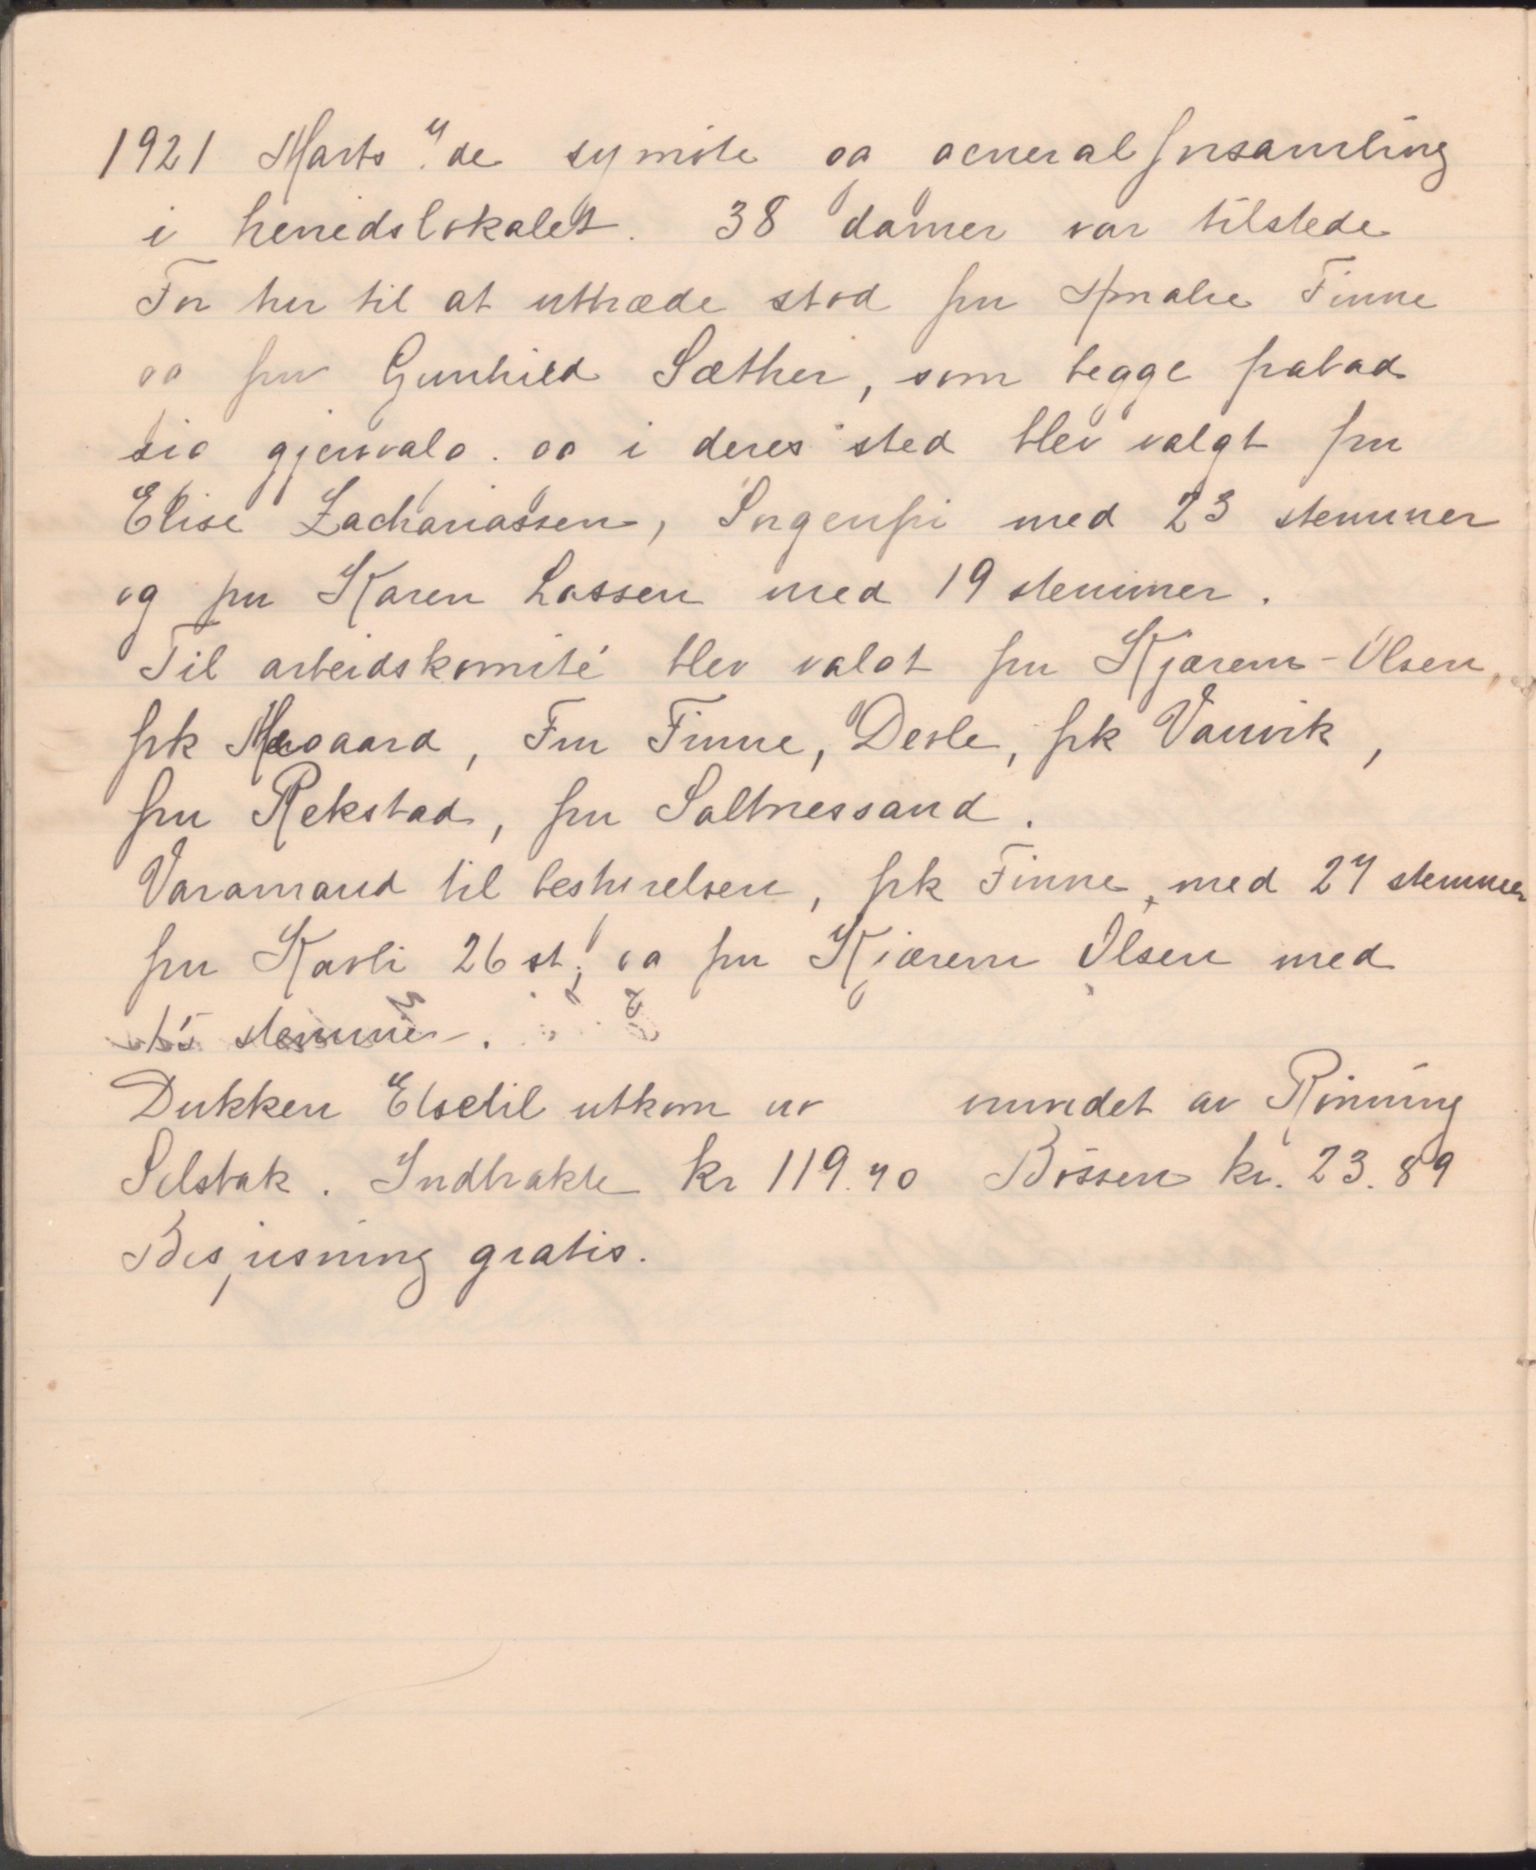 1921 Marts 4.de symöte og generalforsamling
i herredslokalet. 38 damer var tilstede
For tur til at uttræde stod fru Amalie Finne
og fru Gunhild Sæther, som begge frabad
sig gjenvalg. og i deres sted blev valgt fru
Elise Zachariassen, Sorgenfri med 23 stemmer
og fru Karen Lassen med 19 stemmer.
Til arbeidskomité blev valgt fru Kjærem-Olsen,
frk Mogaard, Fru Finne, Devle, frk Vanvik,
fru Rekstad, fru Saltnessand.
Varamand til bestyrelsen, frk Finne, med 27 stemmer
fru Kavli 26 st; og fru Kjærem Olsen med
15 stemmer.
Dukken Elsetil utkom nr vundet av Rönning
Selsbak. Indtrakte kr 119.40 Bössen kr. 23.89
Bespisning gratis.